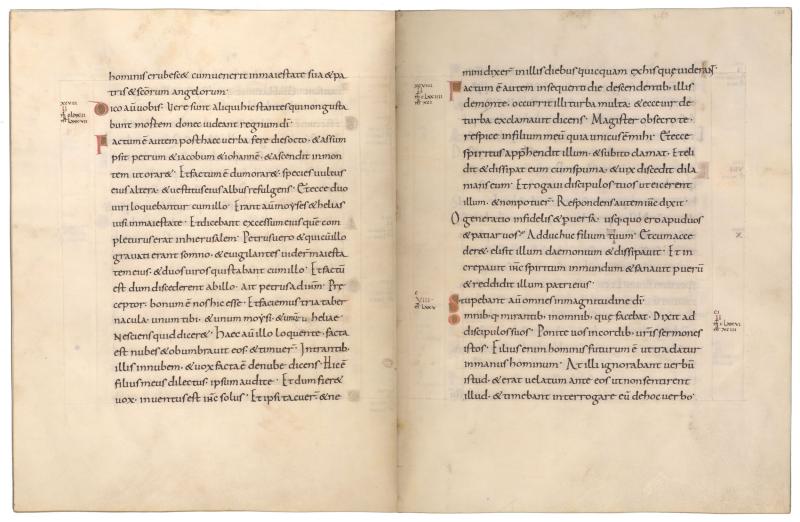 hominis erubesc& cum uenerit inmaiestate sua & pa
tris & scōrum angelorum·
Dico aū uobis· Vere sunt aliqui hic stantes qui non gusta
bunt mortem donec uideant regnum dī·
Factum ē autem post haec uerba fere dies octo· & assum
psit petrum & iacobum & iohannē· & ascendit in mon
tem ut orar&· Et factum ē dum orar& species uultus
eius altera· & uestitus eius albus refulgens· Et ecce duo
uiri loquebantur cum illo· Erant aū moyses & helias
uisi inmaiestate· Et dicebant excessum eius quē com
pleturus erat inhierusalem· Petrus uero & qui cū illo
grauati erant somno· & euigilantes uider̄ maiesta
tem eius· & duos uiros qui stabant cum illo· Et factū
est dum discederent ab illo· Ait petrus ad ihm̄· Pre
ceptor· bonum ē nos hic esse· Et faciamus tria taber
nacula· unum tibi· & unum moysi· & unum heliae
Nesciens quid dicer&· Haec aū illo loquente· facta
est nubes & obumbrauit eos· & timuer̄· Intrantib·
illis innubem· & uox facta ē denube dicens· Hic ē
filius meus dilectus· ipsum audite· Et dum fier&
uox· inuentus est ihc̄ solus· Et ipsi tacuer̄ & ne
mini dixer̄ inillis diebus quicquam exhis que uiderant·
Factum ē autem insequenti die descendentib· illis
demonte· occurrit illi turba multa· & ecce uir de
turba exclamauit dicens· Magister obsecro te·
respice infilium meū quia unicus ē mihi· Et ecce
spiritus appraehendit illum· & subito clamat· Et eli
dit & dissipat eum cum spuma· & uix discedit dila
nians eum· Et rogaui discipulos tuos ut eicerent
illum· & non potuer̄· Respondens autem ihc̄ dixit·
O generatio infidelis & puersa· usq; quo ero apud uos
& patiar uos· Adduc huc filium tuum· Et cum acce
der&· elisit illum daemonium & dissipauit· Et in
crepauit ihc̄ spiritum inmundum & sanauit puerū
& reddidit illum patri eius·
Stupebant aū omnes inmagnitudine dī·
Omnib·q mirantib· inomnib· que faciebat· Dixit ad
discipulos suos· Ponite uos incordib· uris sermones
istos· Filius enim hominis futurum ē ut tradatur
inmanus hominum· At illi ignorabant uerbū
istud· & erat uelatum ante eos ut non sentirent
illud· & timebant interrogare eū dehoc uerbo·